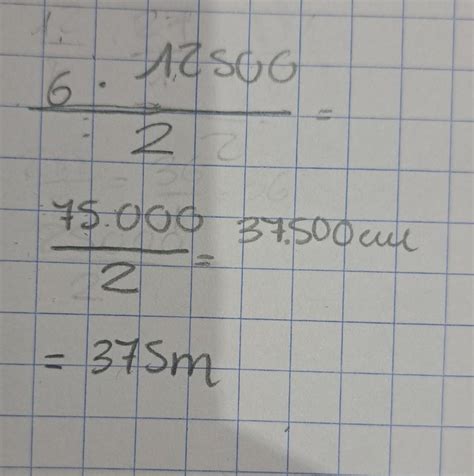 6 · 12500
2 =
75.000
2 = 37.500cm
= 375m